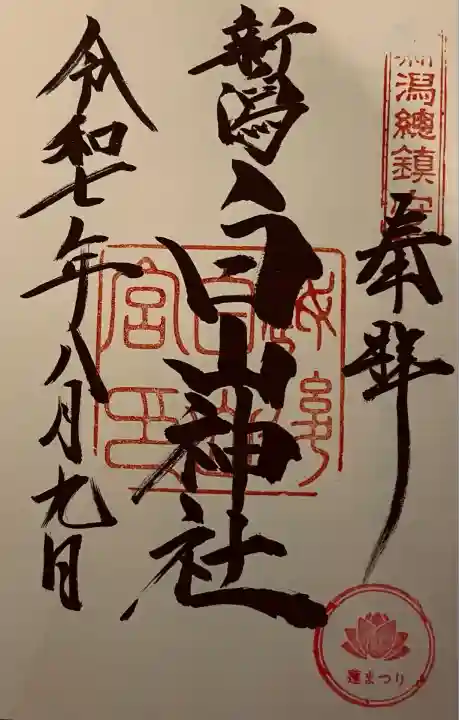 新潟總鎮守
奉拝
新潟白山神社
令和七年八月九日
蓮まつり